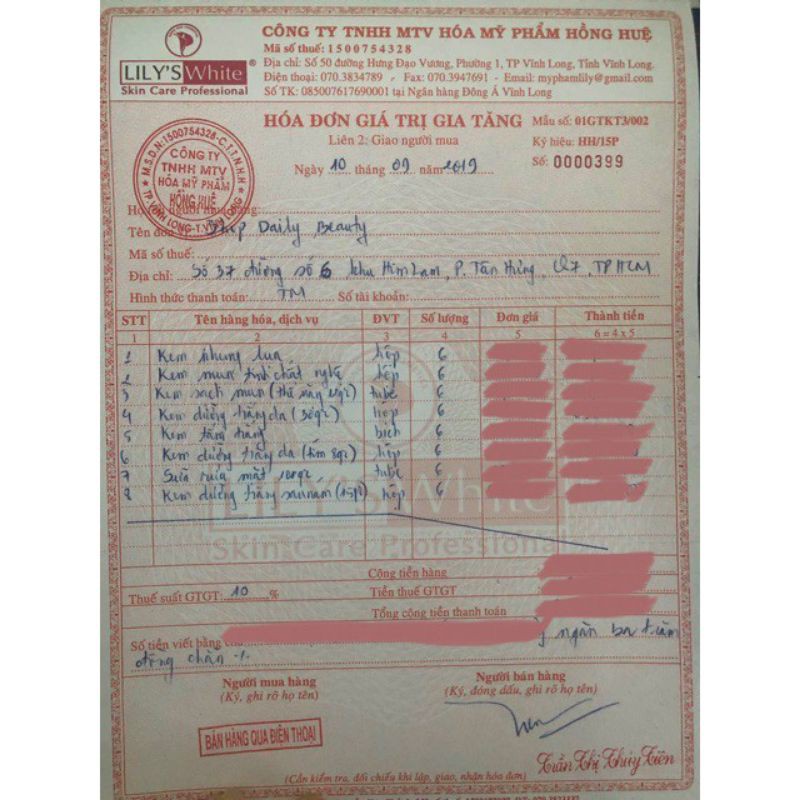 CÔNG TY TNHH MTV HÓA MỸ PHẨM HỒNG HUỆ
Mã số thuế: 1500754328
LILY'S White ®
Skin Care Professional
Địa chỉ: Số 50 đường Hưng Đạo Vương, Phường 1, TP Vĩnh Long, Tỉnh Vĩnh Long.
Điện thoại: 070.3834789 - Fax: 070.3947691 - Email: myphamlily@gmail.com
Số TK: 085007617690001 tại Ngân hàng Đông Á Vĩnh Long
HÓA ĐƠN GIÁ TRỊ GIA TĂNG
Mẫu số: 01GTKT3/002
Liên 2: Giao người mua
Ký hiệu: HH/15P
Ngày 10 tháng 09 năm 2019
Số: 0000399
M.S.D.N:1500754328-C.T.T.N.H.H
CÔNG TY
TNHH MTV
HÓA MỸ PHẨM
HỒNG HUỆ
TP VĨNH LONG-T.VĨNH LONG
Tên đơn Shop Daily Beauty
Mã số thuế:
Địa chỉ: Số 37 đường số 6 khu Him Lam, P. Tân Hưng, Q7, TP HCM
Hình thức thanh toán: TM Số tài khoản:
STT Tên hàng hóa, dịch vụ ĐVT Số lượng Đơn giá Thành tiền
1 2 3 4 5 6 = 4 x 5
1 Kem nhung lụa hộp 6
2 Kem mụn tinh chất nghệ hộp 6
3 Kem sạch mụn tube 6
4 Kem dưỡng trắng da (30gr) hộp 6
5 Kem tắm trắng bịch 6
6 Kem dưỡng trắng da (tím 8gr) hộp 6
7 Sữa rửa mặt 100gr tube 6
8 Kem dưỡng trắng sáu năm (15gr) hộp 6
LILY'S White
Skin Care Professional
Cộng tiền hàng
Thuế suất GTGT: 10 % Tiền thuế GTGT
Tổng cộng tiền thanh toán
Số tiền viết bằng ngàn ba trăm
đồng chẵn
Người mua hàng Người bán hàng
(Ký, ghi rõ họ tên) (Ký, đóng dấu, ghi rõ họ tên)
BÁN HÀNG QUA ĐIỆN THOẠI
Trần Thị Thủy Tiên
(Cần kiểm tra, đối chiếu khi lập, giao, nhận hóa đơn)